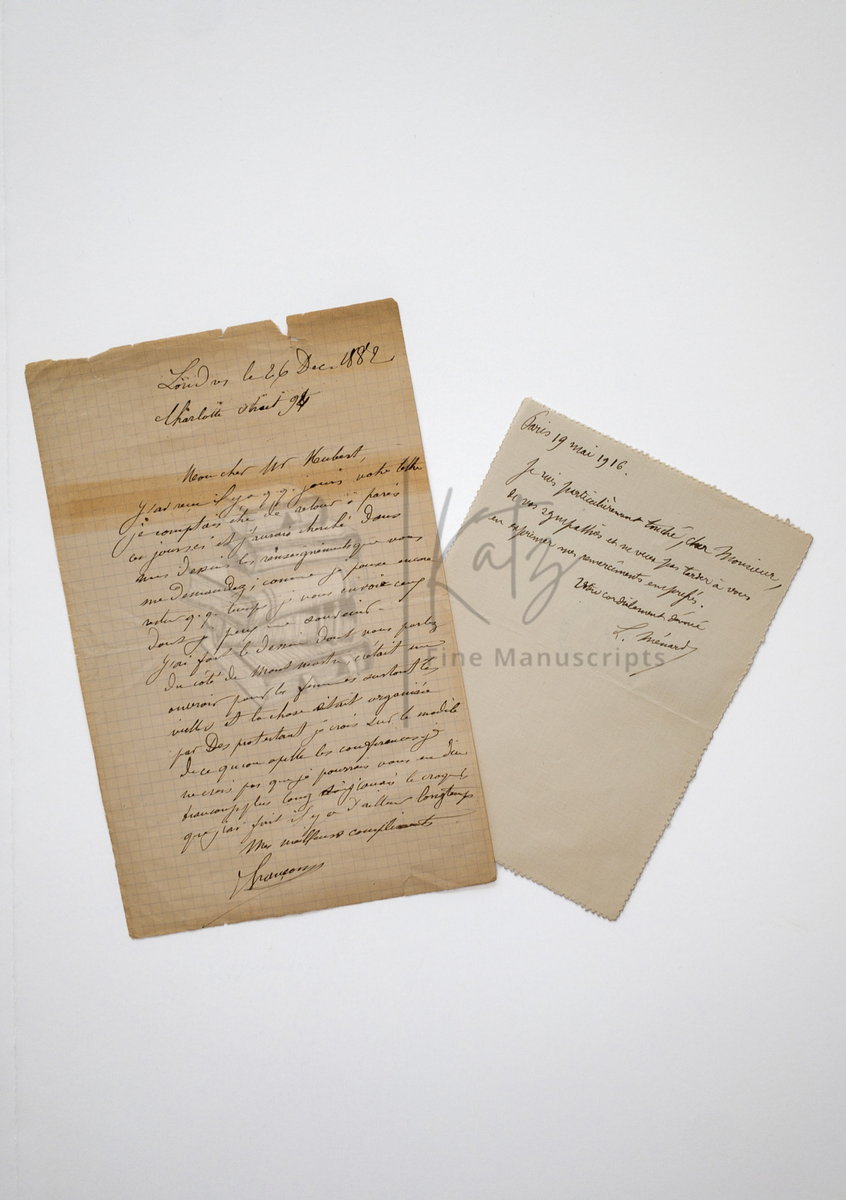 Londres le 26 Dec. 1882
Charlotte street 94
Mon cher Mr Hubert,
J'ai reçu il y a q.q. jours votre lettre
je comptais être de retour à paris
ces jours et j'aurais cherché dans
mes dessins les renseignements que vous
me demandez; comme je pense encore
rester q.q. temps je vous envoie ceux
dont je peux me souvenir -
J'ai fait le dessin dont vous parlez
du côté de Montmartre c'était un
ouvroir pour les femmes surtout les
vieilles et la chose était organisée
par des protestant je crois sur le modèle
de ce qu'on apelle les conferances je
ne crois pas que je pourrais vous en dire
beaucoup plus long le croquis
que j'ai fait il y a d'ailleur longtemps
Mes meilleurs compliments
Paris 19 mai 1916.
Je suis particulièrement touché, cher Monsieur,
de vos sympathies et ne veux pas tarder à vous
en exprimer mes remerciements empressés.
Votre cordialement dévoué
L. Ménard
Katz
Fine Manuscripts